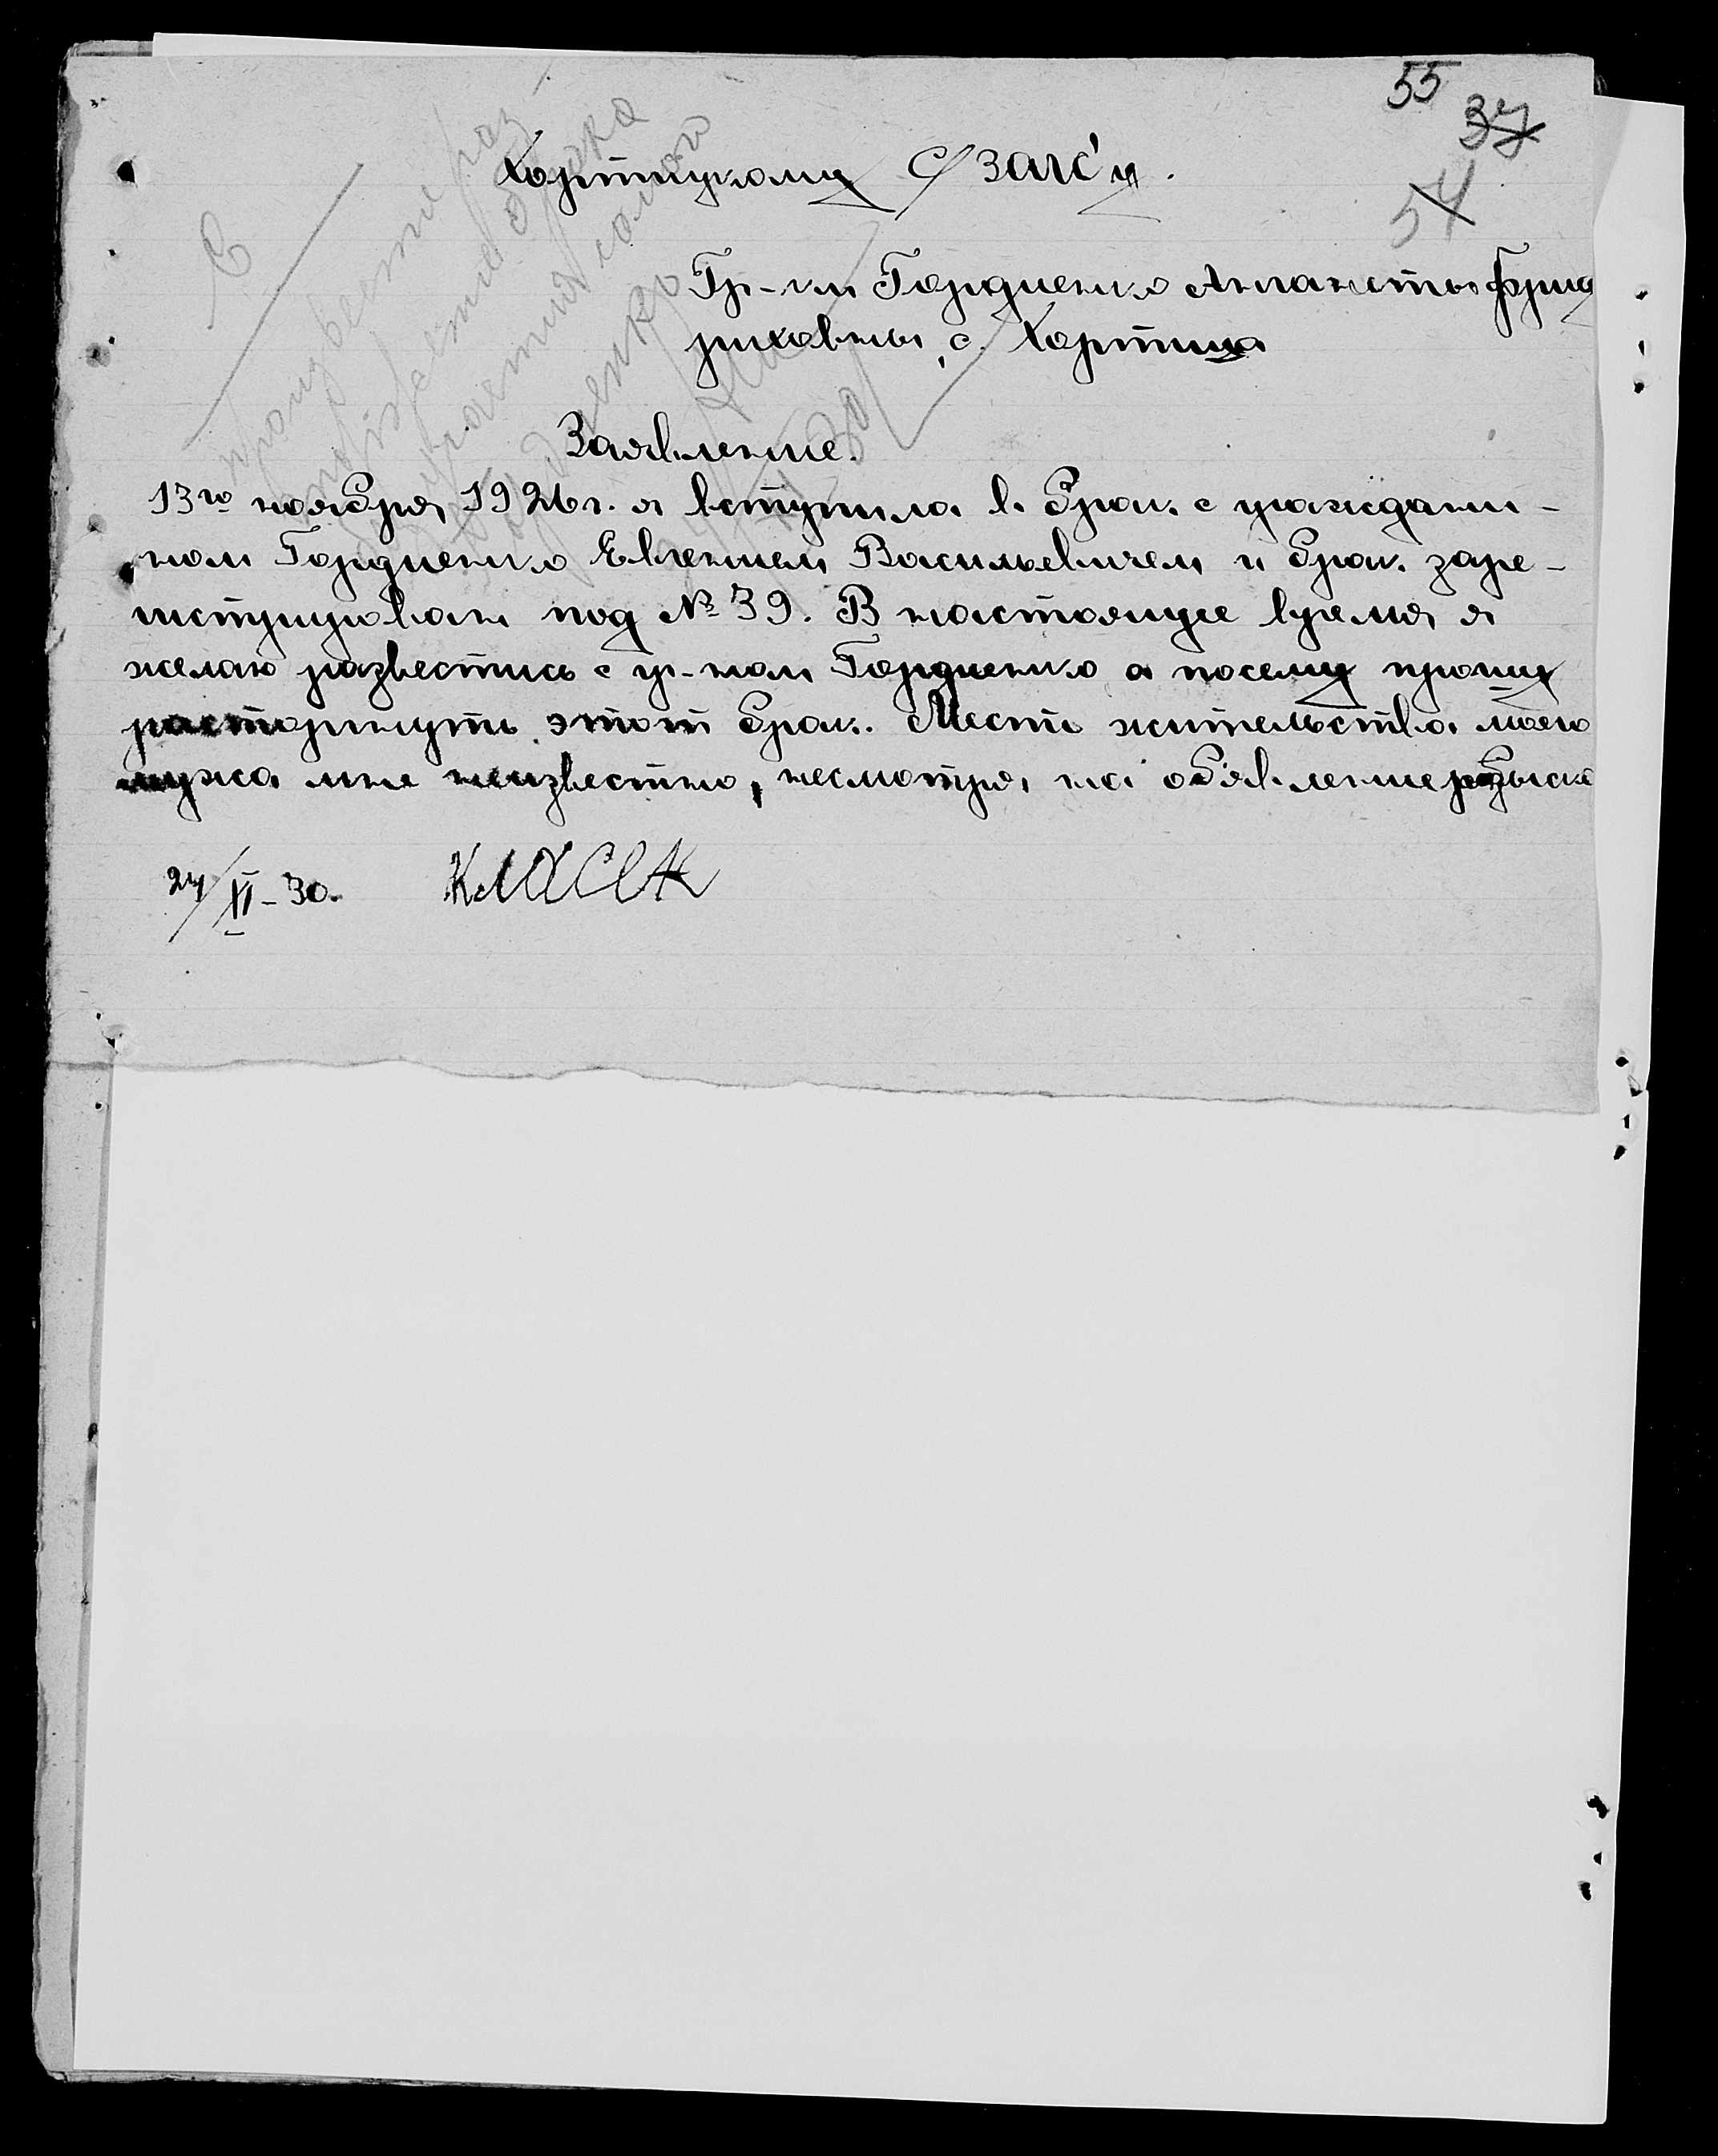 55
37
54
Хортицкому С/ЗАГС'у.
Гр-ки Гордиенко Фрид
риховны, с. Хортица
Заявление.
13го ноября 1926г. я вступила в брак с граждани-
ном Гордиенко Евгением Васильевичем и брак заре-
гистрирован под № 39. В настоящее время я
желаю развестись с гр-ном Гордиенко а посему прошу
расторгнуть этот брак. Место жительства моего
мужа мне неизвестно, несмотря на об'явление розыска
24/XI-30.